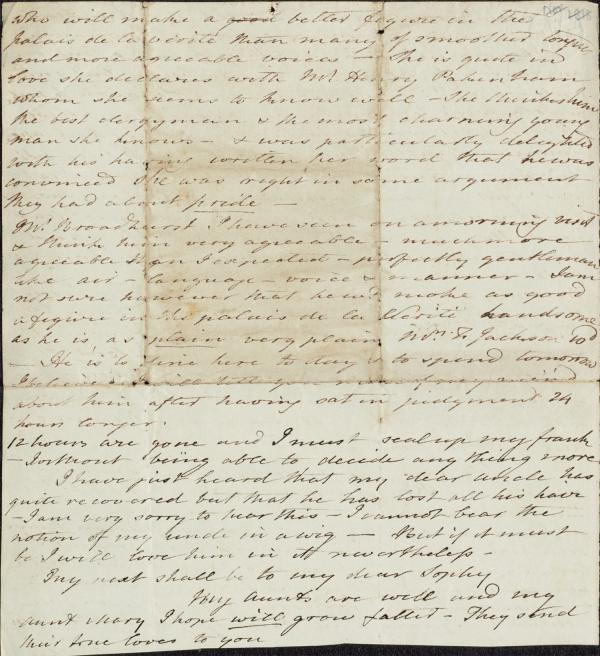 who will make a good better figure in the
palais de la verité than many of smoother tongue
and more agreeable voices - She is quite in
love she declares with Mr Henry Pakenham
whom she seems to know well - She thinks him
the best clergyman & the most charming young
man she knows - & was particularly delighted
with his having written her word that he was
convinced she was right in some argument
they had about pride -
Mr. Broadhurst I have seen on a morning visit
& think him very agreeable - much more
agreeable than I expected - perfectly gentleman
like air - language - voice & manner - I am
not sure however that he wd make as good
a figure in the palais de la Verité handsome
as he is as plain very plain Mr. Jackson wd
- He is to dine here to day & to spend tomorrow
I believe I will tell you more of my mind
about him after having sat in judgment 24
hours longer.
12 hours are gone and I must seal up my frank
- Without being able to decide any thing more
I have just heard that my dear uncle has
quite recovered but that he has lost all his hair
- I am very sorry to hear this - I cannot bear the
notion of my uncle in a wig - But if it must
be I will love him in it nevertheless -
My next shall be to my dear Sophy
My aunts are well and my
aunt Mary I hope will grow fatter - They send
their true loves to you